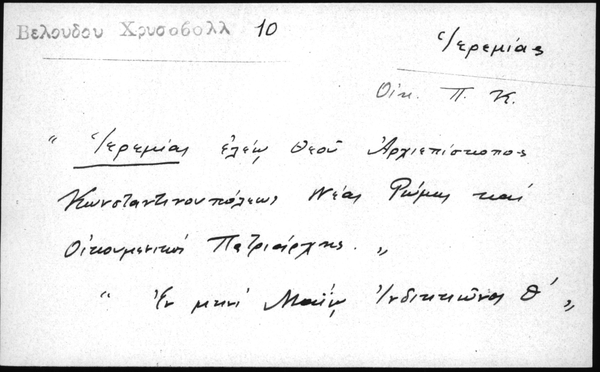 Βελουδου Χρυσοβολλ 10
Ἱερεμίας
Οἰκ. Π. Κ.
“ Ἱερεμίας ἐλέῳ Θεοῦ Ἀρχιεπίσκοπος
Κωνσταντινουπόλεως Νέας Ρώμης καὶ
Οἰκουμενικὸς Πατριάρχης. „
“ Ἐν μηνὶ Μαΐῳ Ἰνδικτιῶνος Θ΄ „